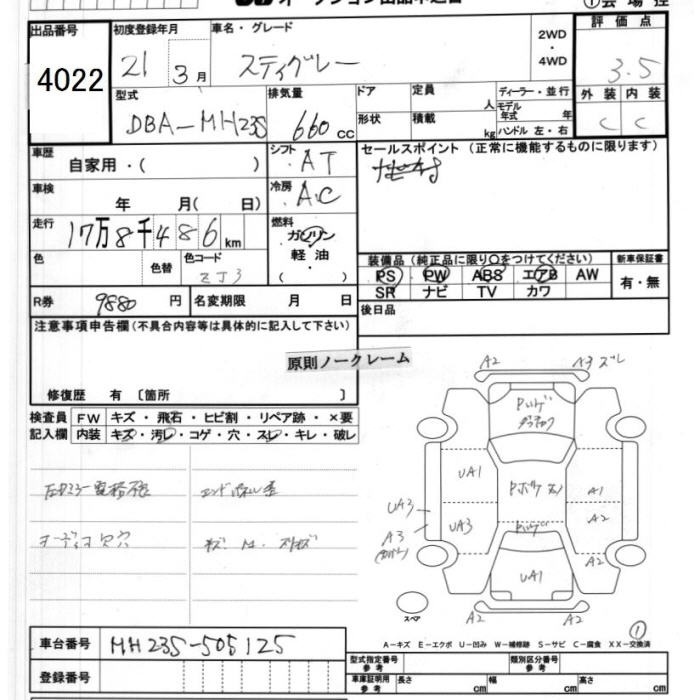 出品番号 初度登録年月 車名・グレード 2WD・4WD 評価点
4022 21 3月 スティグレー 3.5
型式 排気量 ドア 定員 人 ディーラー・並行 外装 内装
DBA-MH23S 660cc 形状 積載 kg モデル年式 年 ハンドル 左・右 C C
車歴 自家用・( ) シフト AT セールスポイント (正常に機能するものに限ります)
車検 年 月( 日) 冷房 A.C
走行 17万8千486km 燃料 ガソリン
軽油・( )
色 色替 色コード ZJ3 装備品(純正品に限り○をつけてください) 新車保証書
PS PW ABS エアB AW 有・無
SR ナビ TV カワ
R券 9880円 名変期限 月 日 後日品
注意事項申告欄(不具合内容等は具体的に記入して下さい)
原則ノークレーム
修復歴 有 〔箇所 〕
検査員記入欄 FW キズ・飛石・ヒビ割・リペア跡・×要
内装 キズ・汚レ・コゲ・穴・スレ・キレ・破レ
オーディオ欠穴
A2 A3 ズレ
UA1 A1
UA3 UA3 A2
A3 A2
UA1
スペア A2 A2
①
A-キズ E-エクボ U-凹み W-補修跡 S-サビ C-腐食 XX-交換済
車台番号 MH23S-505125
型式指定番号 参考 類別区分番号 参考
登録番号 車庫証明用 参考 長さ cm 幅 cm 高さ cm